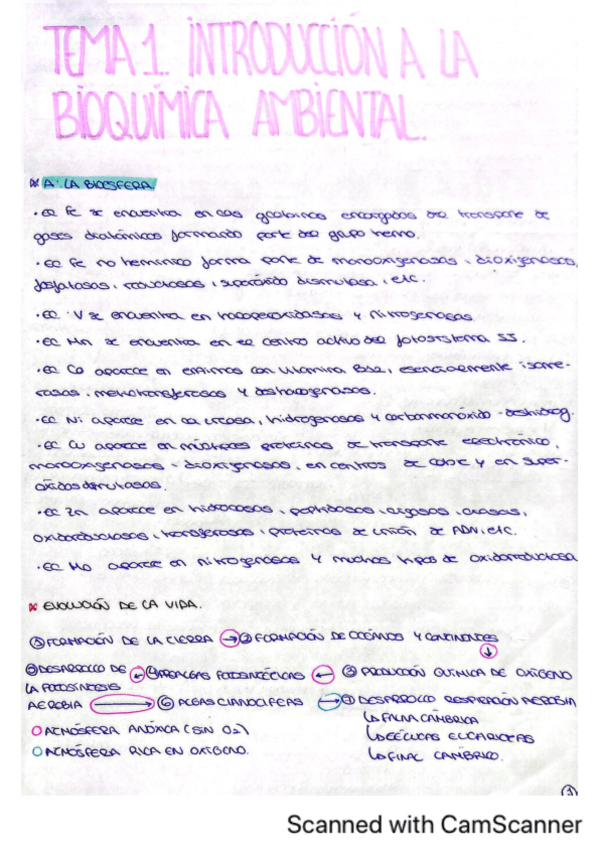 TEMA 1. INTRODUCCIÓN A LA
BIOQUÍMICA AMBIENTAL.
A. LA BIOSFERA
· EL Fe se encuentra en las globinas encargados del transporte de
gases diatómicos formando parte del grupo hemo.
· EL Fe no hemínico forma parte de monooxigenasas, dioxigenasas,
fosfatasas, reductasas, superóxido dismutasa, etc.
· EL V se encuentra en haloperoxidasas y nitrogenasas
· EL Mn se encuentra en el centro activo del fotosistema II.
· EL Co aparece en enzimas con vitamina B12, esencialmente isome-
rasas, metiltransferasas y deshalogenasas.
· EL Ni aparece en la ureasa, hidrogenasas y carbonmonóxido-deshidrog.
· EL Cu aparece en múltiples proteínas de transporte electrónico,
monooxigenasas, dioxigenasas, en centros de y en super-
óxidodismutasas.
· EL Zn aparece en hidrolasas, peptidasas, ligasas, liasas,
oxidorreductasas, transferasas, proteínas de unión de ADN, etc.
· EL Mo aparece en nitrogenasas y muchos tipos de oxidorreductasa
EVOLUCIÓN DE LA VIDA.
① FORMACIÓN DE LA TIERRA → ② FORMACIÓN DE OCÉANOS Y CONTINENTES
↓
⑤ DESARROLLO DE ← ④ FOTOSINTÉTICAS ← ③ PRODUCCIÓN QUÍMICA DE OXÍGENO
LA FOTOSÍNTESIS
AEROBIA → ⑥ ALGAS CIANOFÍCEAS → ⑦ DESARROLLO RESPIRACIÓN AEROBIA
↳ FAUNA CÁMBRICA
↳ CÉLULAS EUCARIOTAS
↳ FINAL CÁMBRICO.
O ATMÓSFERA ANÓXICA (SIN O2)
O ATMÓSFERA RICA EN OXÍGENO.
①
Scanned with CamScanner